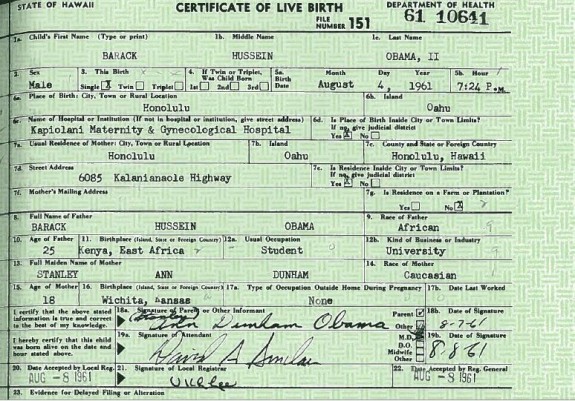 STATE OF HAWAII CERTIFICATE OF LIVE BIRTH DEPARTMENT OF HEALTH
FILE NUMBER 151 61 10641
1a. Child's First Name (Type or print) 1b. Middle Name 1c. Last Name
BARACK HUSSEIN OBAMA, II
2. Sex 3. This Birth 4. If Twin or Triplet, Was Child Born 5a. Birth Date Month Day Year 5b. Hour
Male Single X Twin Triplet 1st 2nd 3rd August 4, 1961 7:24 P.M.
6a. Place of Birth: City, Town or Rural Location 6b. Island
Honolulu Oahu
6c. Name of Hospital or Institution (If not in hospital or institution, give street address) 6d. Is Place of Birth Inside City or Town Limits? If no, give judicial district
Kapiolani Maternity & Gynecological Hospital Yes X No
7a. Usual Residence of Mother: City, Town or Rural Location 7b. Island 7c. County and State or Foreign Country
Honolulu Oahu Honolulu, Hawaii
7d. Street Address 7e. Is Residence Inside City or Town Limits? If no, give judicial district
6085 Kalanianaole Highway Yes X No
7f. Mother's Mailing Address 7g. Is Residence on a Farm or Plantation?
Yes No X
8. Full Name of Father 9. Race of Father
BARACK HUSSEIN OBAMA African
10. Age of Father 11. Birthplace (Island, State or Foreign Country) 12a. Usual Occupation 12b. Kind of Business or Industry
25 Kenya, East Africa Student University
13. Full Maiden Name of Mother 14. Race of Mother
STANLEY ANN DUNHAM Caucasian
15. Age of Mother 16. Birthplace (Island, State or Foreign Country) 17a. Type of Occupation Outside Home During Pregnancy 17b. Date Last Worked
18 Wichita, Kansas None
I certify that the above stated information is true and correct to the best of my knowledge. 18a. Signature of Parent or Other Informant Parent Other 18b. Date of Signature
(Stanley) Ann Dunham Obama 8-7-61
I hereby certify that this child was born alive on the date and hour stated above. 19a. Signature of Attendant M.D. D.O. Midwife Other 19b. Date of Signature
David A Sinclair 8-8-61
20. Date Accepted by Local Reg. 21. Signature of Local Registrar 22. Date Accepted by Reg. General
AUG -8 1961 U K L Lee AUG -8 1961
23. Evidence for Delayed Filing or Alteration